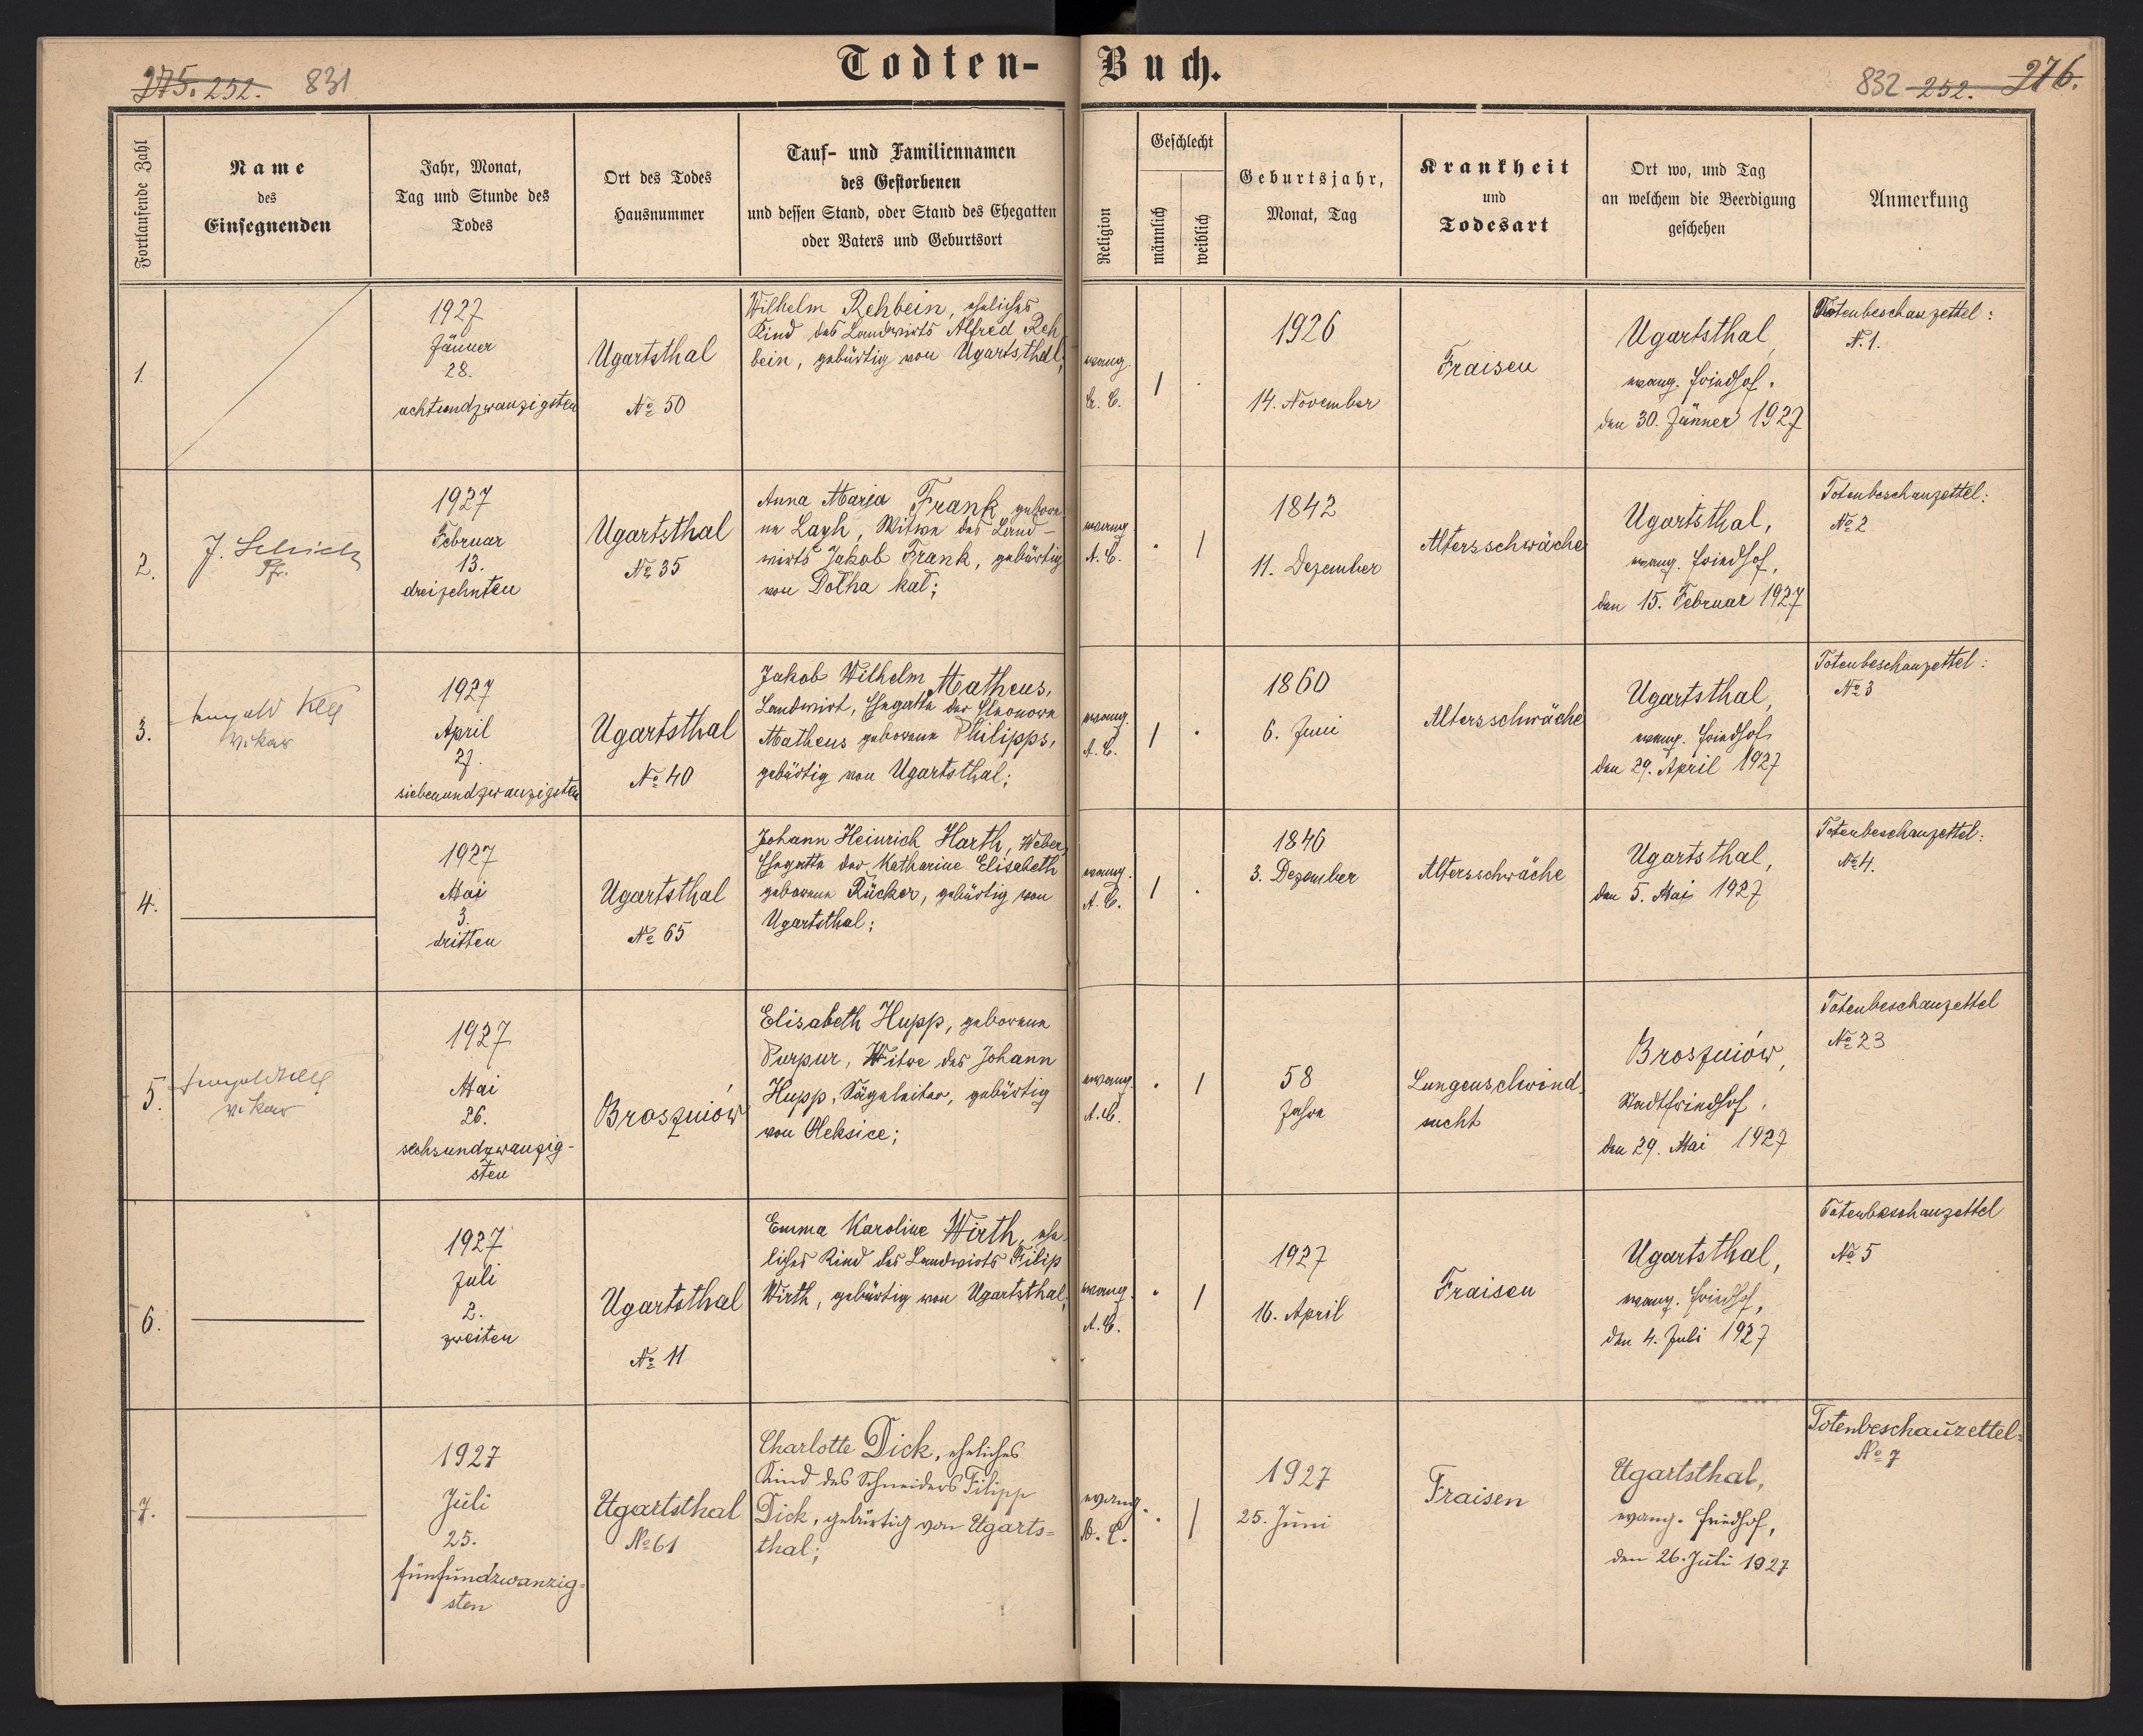 Todten-Buch.
275. 252. 831
832 252. 276.
Fortlaufende Zahl
Name
des
Einsegnenden
Jahr, Monat,
Tag und Stunde des
Todes
Ort des Todes
Hausnummer
Tauf- und Familiennamen
des Gestorbenen
und dessen Stand, oder Stand des Ehegatten
oder Vaters und Geburtsort
Religion
Geschlecht
männlich
weiblich
Geburtsjahr,
Monat, Tag
Krankheit
und
Todesart
Ort wo, und Tag
an welchem die Beerdigung
geschehen
Anmerkung
1.
1927
Jänner
28.
achtundzwanzigsten
Ugartsthal
No 50
Wilhelm Rehbein, eheliches
Kind des Landwirts Alfred Reh
bein, gebürtig von Ugartsthal;
evang.
A. C.
1926
14. November
Fraisen
Ugartsthal,
evang. Friedhof,
den 30. Jänner 1927
Totenbeschauzettel:
N. 1.
2.
J. Schick
Pfr.
1927
Februar
13.
dreizehnten
Ugartsthal
No 35
Anna Maria Frank gebore
ne Layh, Witwe des Land-
wirts Jakob Frank, gebürtig
von Dolha kal;
evang.
A. C.
1842
11. Dezember
Altersschwäche
Ugartsthal,
evang. Friedhof,
den 15. Februar 1927
Totenbeschauzettel:
No 2
3.
Vikar
1927
April
27.
siebenundzwanzigsten
Ugartsthal
No 40
Jakob Wilhelm Matheus,
Landwirt, Ehegatte der Eleonore
Matheus geborene Philipps,
gebürtig von Ugartsthal;
evang.
A. C.
1860
6. Juni
Altersschwäche
Ugartsthal,
evang. Friedhof,
den 29. April 1927
Totenbeschauzettel:
No 3
4.
1927
Mai
3.
dritten
Ugartsthal
No 65
Johann Heinrich Harth, Weber,
Ehegatte der Katharine Elisabeth
geborene Rücker, gebürtig von
Ugartsthal;
evang.
A. C.
1846
3. Dezember
Altersschwäche
Ugartsthal,
den 5. Mai 1927
Totenbeschauzettel:
No 4.
5.
Vikar
1927
Mai
26.
sechsundzwanzig-
sten
Broszniów
Elisabeth Hupp, geborene
Purpur, Witwe des Johann
Hupp, Sägeleiter, gebürtig
von Oleksice;
evang.
A. C.
58
Jahre
Lungenschwind
sucht
Broszniów,
Stadtfriedhof,
den 29. Mai 1927
Totenbeschauzettel
No 23
6.
1927
Juli
2.
zweiten
Ugartsthal
No 11
Emma Karoline Wirth, ehe-
liches Kind des Landwirts Filip
Wirth, gebürtig von Ugartsthal;
evang.
A. C.
1927
16. April
Fraisen
Ugartsthal,
evang. Friedhof,
den 4. Juli 1927
Totenbeschauzettel
No 5
7.
1927
Juli
25.
fünfundzwanzig-
sten
Ugartsthal
No 61
Charlotte Dick, eheliches
Kind des Schneiders Filipp
Dick, gebürtig von Ugarts=
thal;
evang.
A. C.
1927
25. Juni
Fraisen
Ugartsthal,
evang. Friedhof,
den 26. Juli 1927
Totenbeschauzettel:
No 7